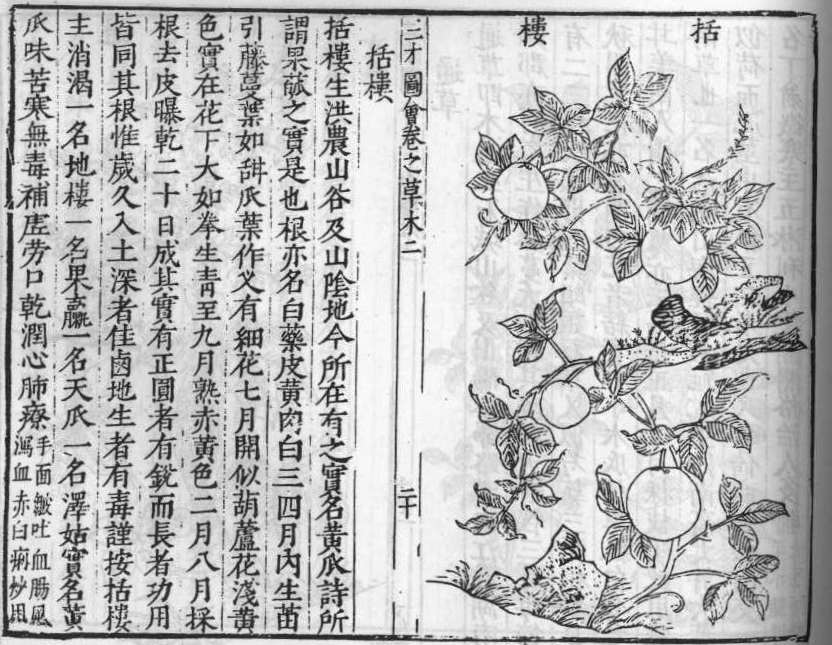 括樓
三才圖會卷之草木二
二十
括樓
括樓生洪農山谷及山陰地今所在有之實名黃瓜詩所
謂果蓏之實是也根亦名白藥皮黃肉白三四月內生苗
引藤蔓葉如甜瓜葉作叉有細花七月開似葫蘆花淺黃
色實在花下大如拳生青至九月熟赤黃色二月八月採
根去皮曝乾二十日成其實有正圓者有銳而長者功用
皆同其根惟歲久入土深者佳鹵地生者有毒謹按括樓
主消渴一名地樓一名果臝一名天瓜一名澤姑實名黃
瓜味苦寒無毒補虛劳口乾潤心肺療手面皺吐血腸風
瀉血赤白痢炒用